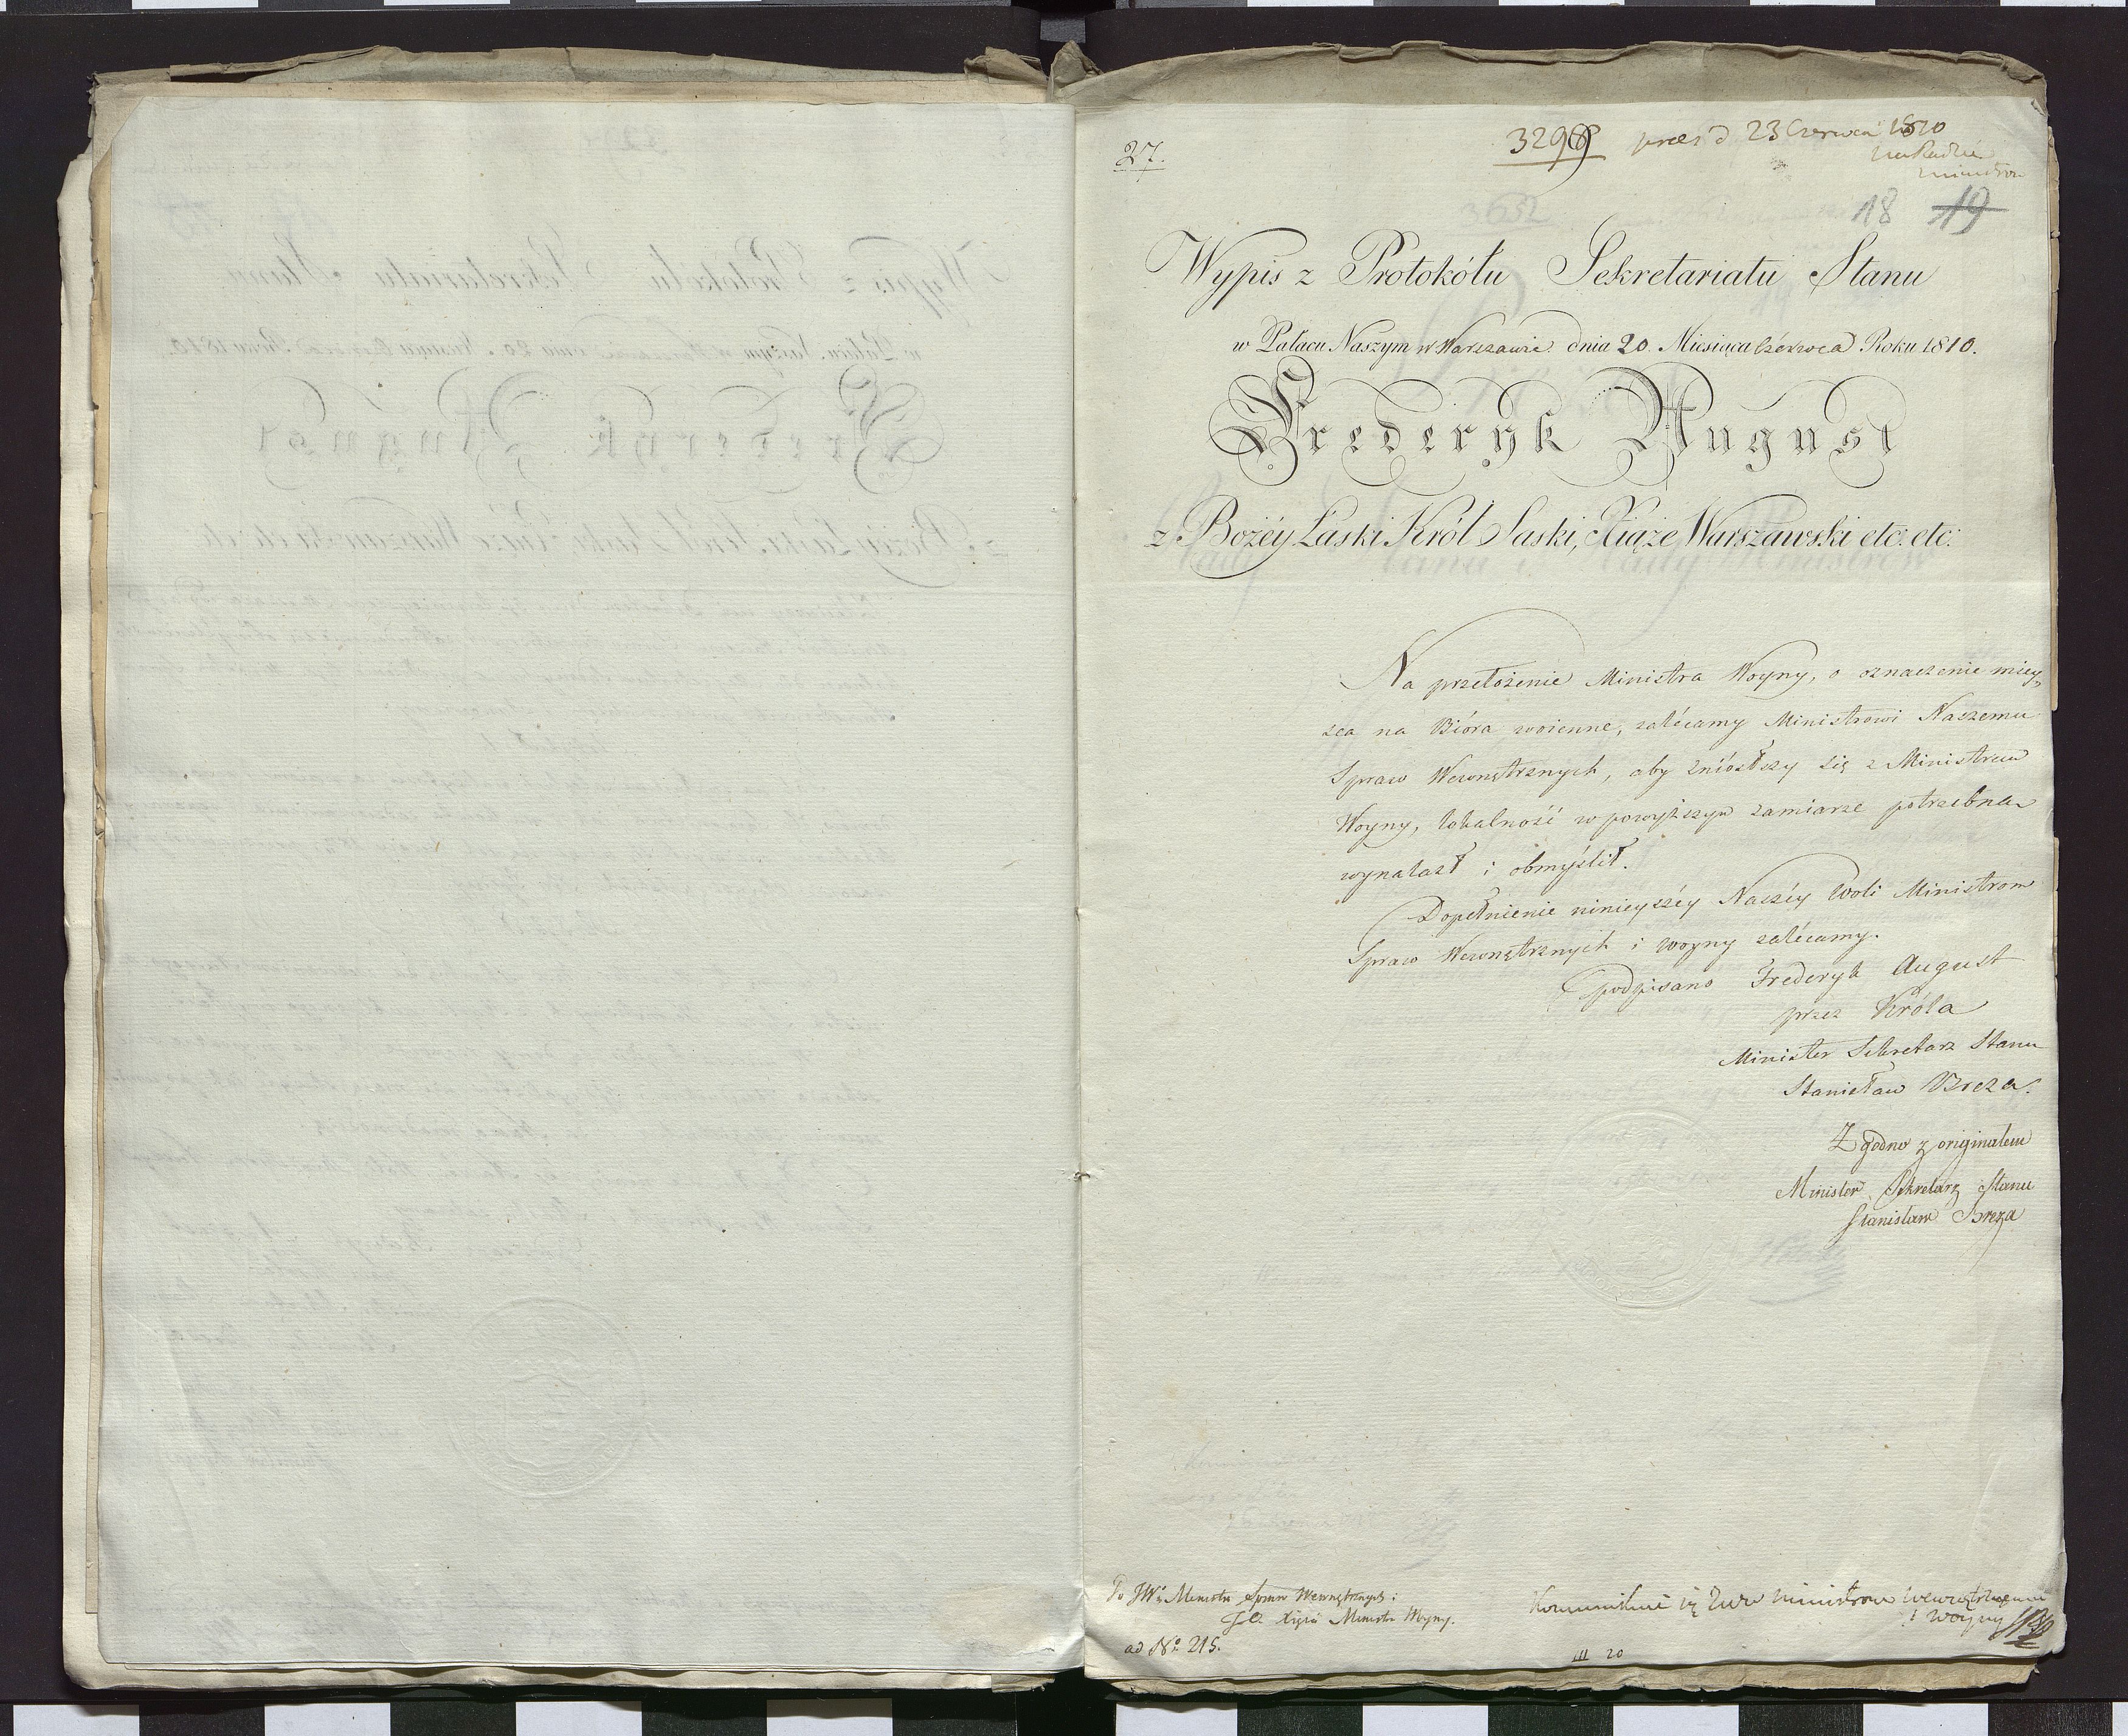 27.
329 pres d 23 Czerwca 1810
na Radzie
ministrow
18 19
Wypis z Protokółu Sekretariatu Stanu
w Pałacu Naszym w Warszawie dnia 20. Miesiąca Czérwca Roku 1810.
Frederyk August
z Bożéy Łaski Król Saski, Xiąże Warszawski etc: etc:
Na przełożenie Ministra Woyny, o oznaczenie miey„
sca na Bióra woienne, zalécamy Ministrowi Naszemu
Spraw Wewnętrznych, aby zniósłszy się z Ministrem
Woyny, lokalność w powyższym zamiarze potrzebna
wynalazł i obmyślił.
Dopełnienie ninieyszéy Naszéy Woli Ministrom
Spraw Wewnętrznych i Woyny zalécamy.
podpisano Frederyk August
przez Króla
Minister Sekretarz Stanu
Stanisław Breza.
Zgodno z originałem
Minister Sekretarz Stanu
Stanisław Breza
Do JW: Ministra Spraw Wewnętrznych i
J.O. Xięcia Ministra Woyny.
ad No. 215.
ministrow wewnętrznemu
i woyny
III 20